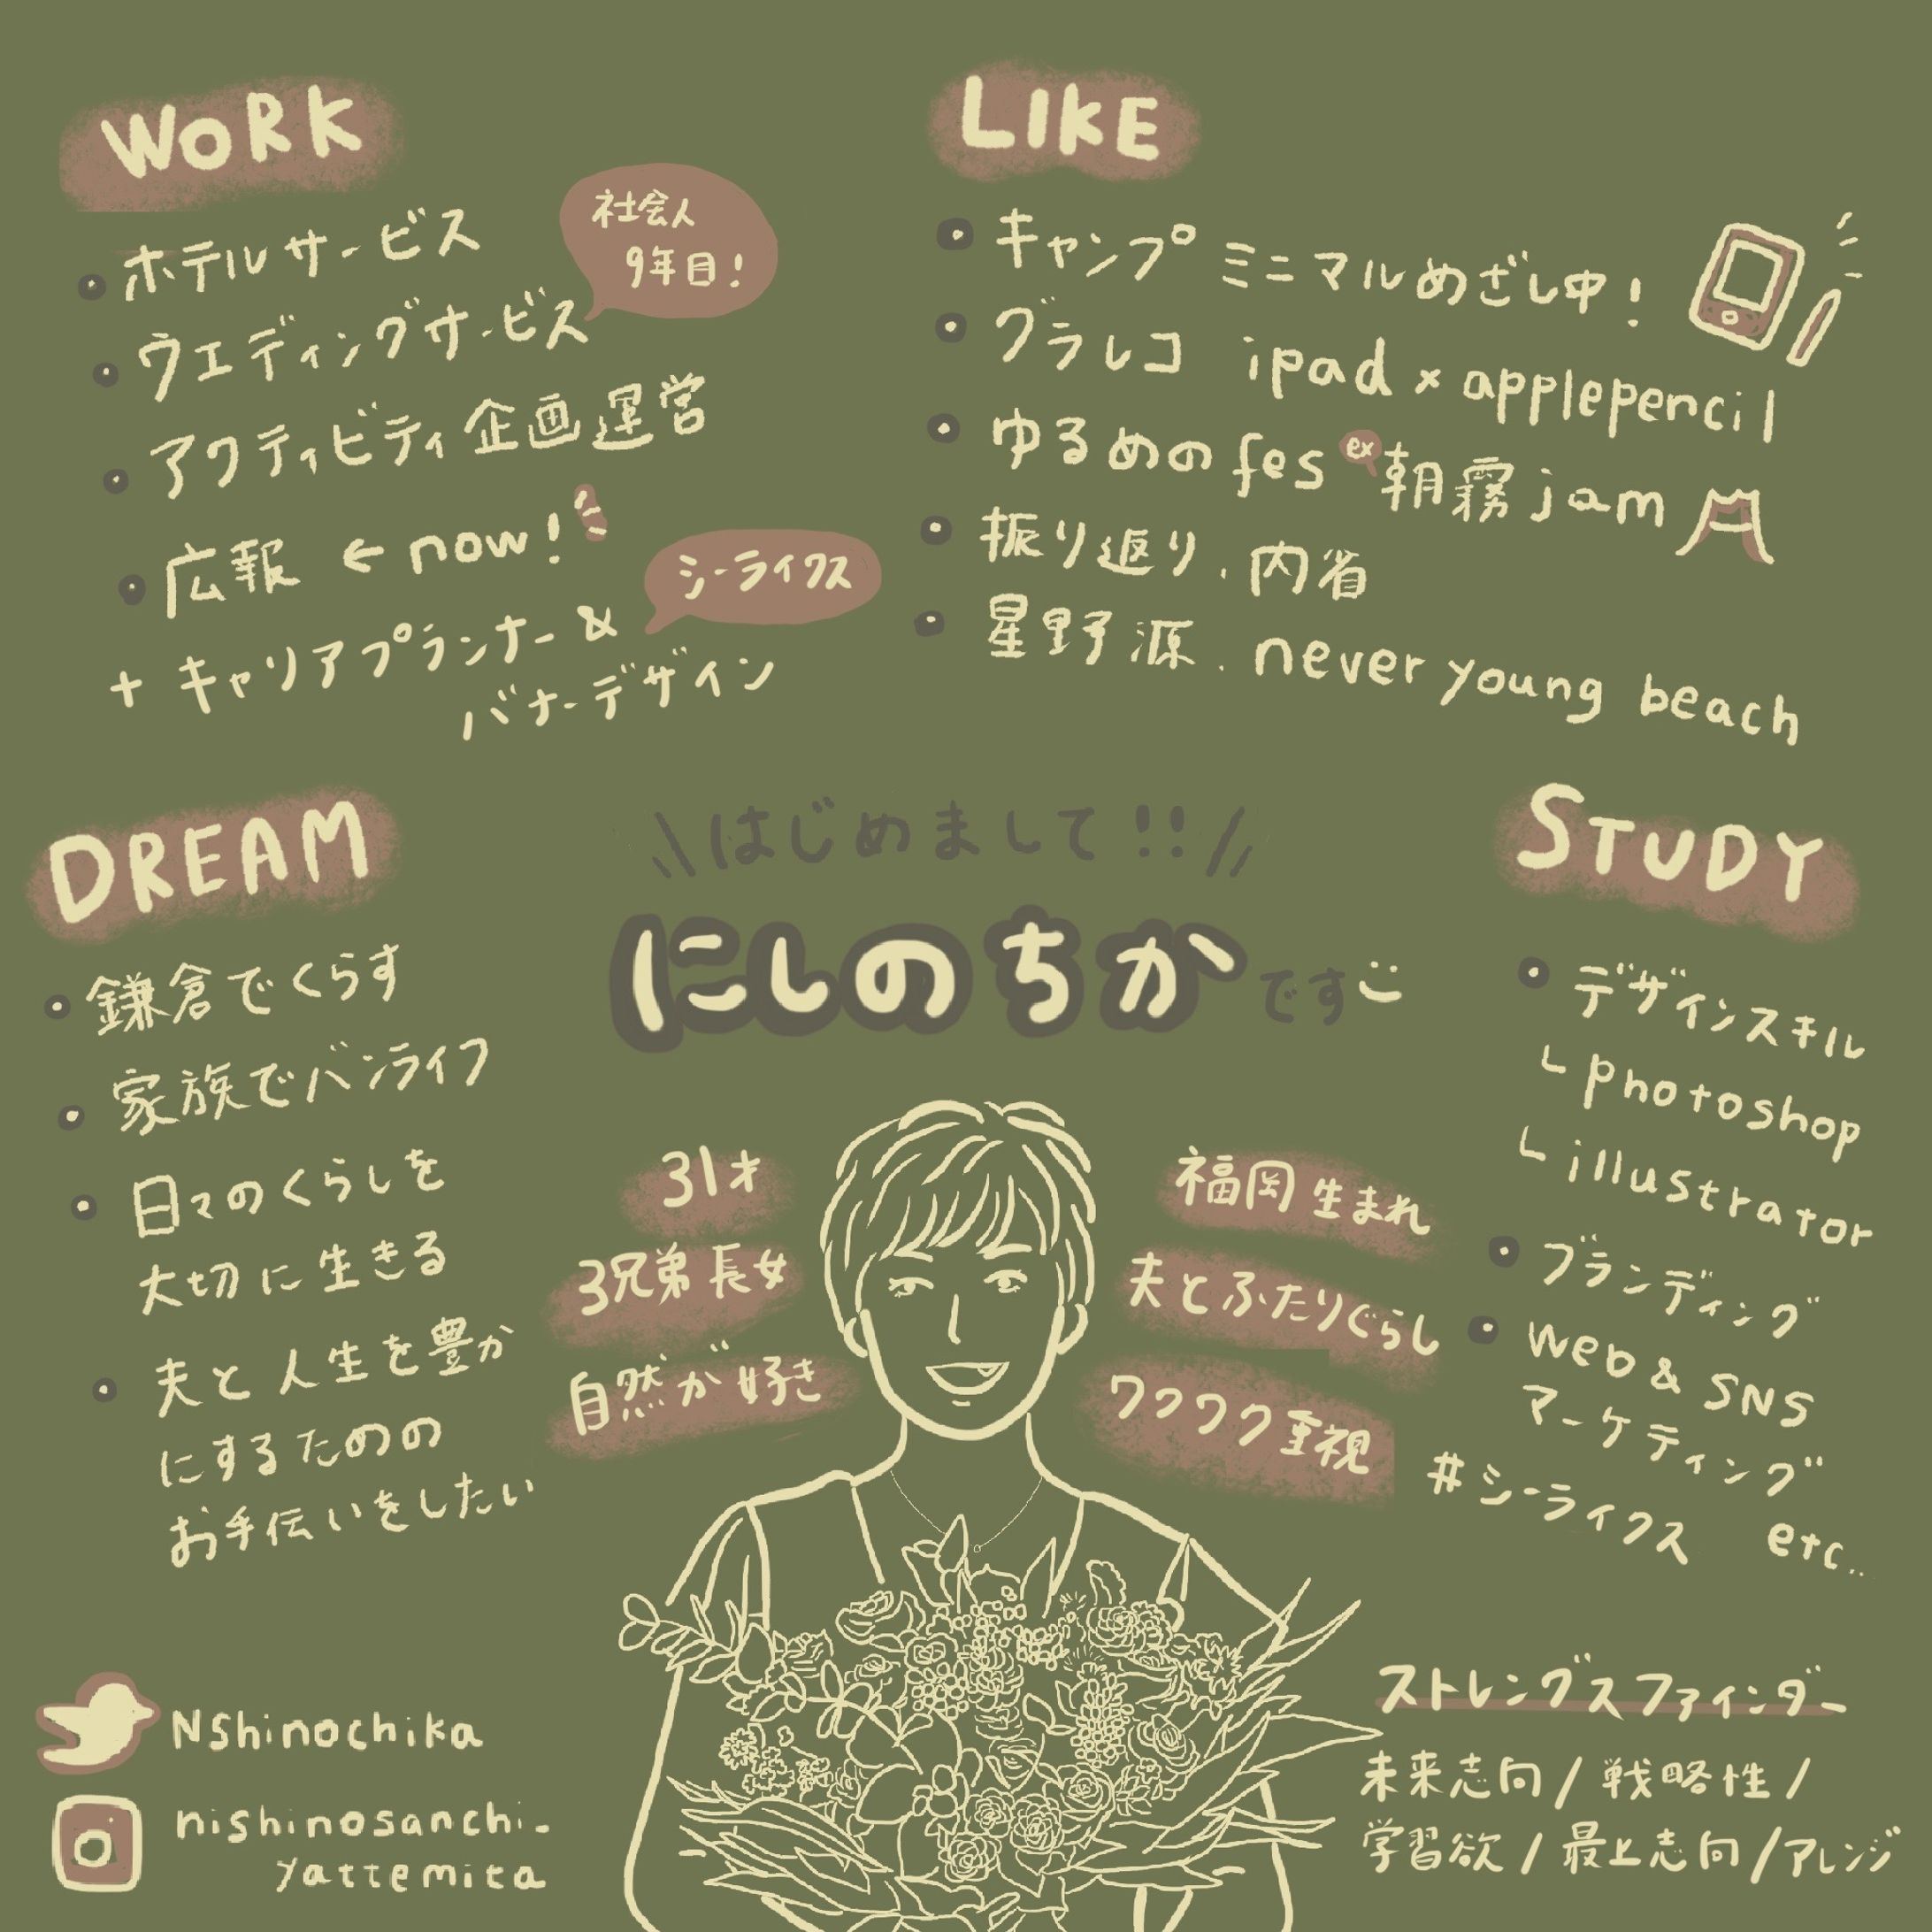 WORK
ホテルサービス
ウエディングサービス
社会人
9年目!
アクティビティ企画運営
広報 ← now!
+ キャリアプランナー &
バナーデザイン
シーライクス
LIKE
キャンプ ミニマルめざし中!
グラレコ ipad × applepencil
ゆるめの fes ex 朝霧 jam
振り返り、内省
星野源、never young beach
DREAM
鎌倉でくらす
家族でバンライフ
日々のくらしを
大切に生きる
夫と人生を豊か
にするための
お手伝いをしたい
\\ はじめまして!! //
にしのちかです
31才
3兄弟長女
自然が好き
福岡生まれ
夫とふたりぐらし
ワクワク重視
STUDY
デザインスキル
└ photoshop
└ illustrator
ブランディング
web & SNS
マーケティング
#シーライクス etc..
NShinochika
nishinosanchi_
yattemita
ストレングスファインダー
未来志向 / 戦略性 /
学習欲 / 最上志向 / アレンジ